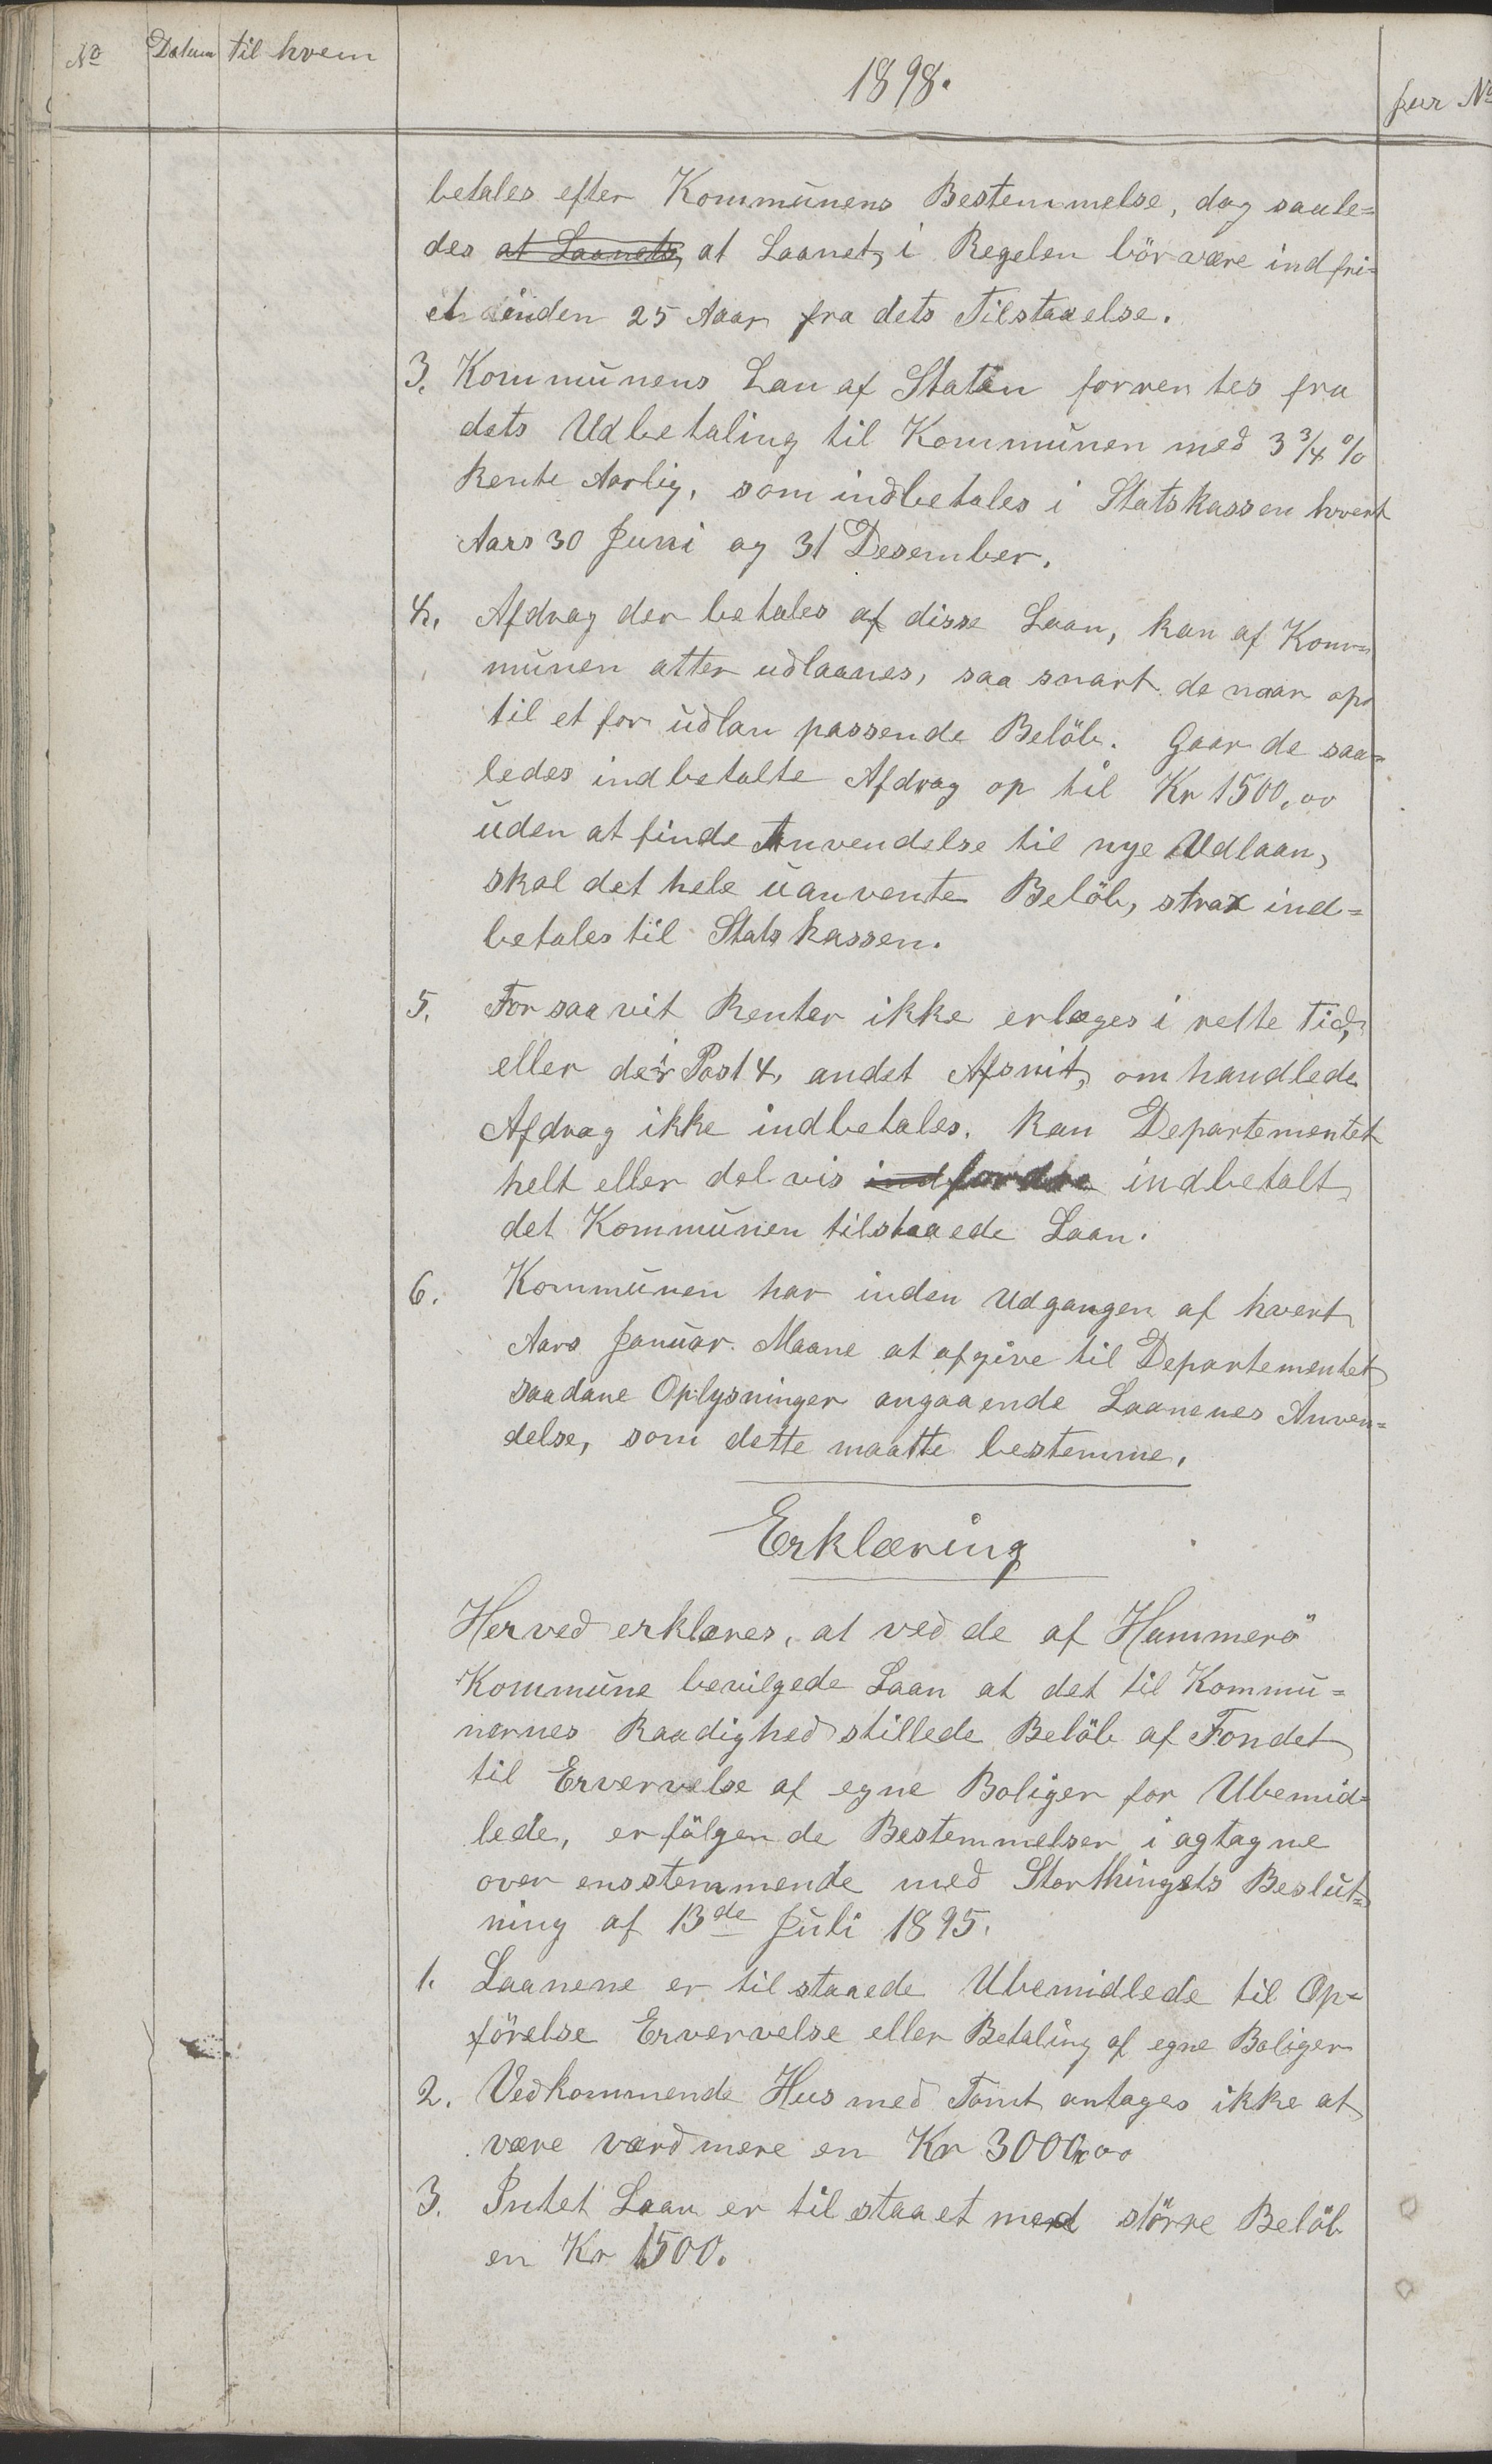 No Datum til hvem
1898.
jur No
betales efter Kommunens Bestemmelse, dog saale=
des at Laanets, at Laanet, i Regelen bör være indfri=
et inden 25 Aaar fra dets Tilstaaelse.
3. Kommunens Lan af Staten forrentes fra
dets Udbetaling til Kommunen med 3 3/4 %
Rente Aarlig, som indbetales i Statskassen hvert
Aars 30 Juni og 31 Desember.
4. Afdrag der betales af disse Laan, kan af Kom=
munen atter udlaanes, saa snart de naar op
til et for udlan passende Belöb. Gaar de saa=
ledes indbetalte Afdrag op til Kr 1500,00
uden at finde Anvendelse til nye Udlaan,
skal det hele uanvente Belöb, strax ind=
betales til Statskassen.
5. Forsaavit Renter ikke erlæges i rette Tid,
eller de i Post 4, andet Afsnit, omhandlede
Afdrag ikke indbetales. kan Departementet
helt eller delvis indfordre indbetalt
det Kommunen tilstaaede Laan.
6. Kommunen har inden Udgangen af hvert
Aars Januar. Maane at afgive til Departementet
saadane Oplysninger angaaende Laanenes Anven=
delse, som dette maatte bestemme.
Erklæring
Herved erklæres, at ved de af Hammerö
Kommune bevilgede Laan at det til Kommu=
nernes Raadighed stillede Belöb af Fondet
til Ervervelse af egne Boliger for Ubemid=
lede, er fölgende Bestemmelser iagtagne
overensstemmende med Storthingets Beslut=
ning af 13de Juli 1895.
1. Laanene er tilstaaede Ubemidlede til Op=
förelse Ervervelse eller Betaling af egne Boliger
2. Vedkommende Hus med Tomt antages ikke at
være værd mere en Kr 3000,00
3. Intet Laan er tilstaaet med större Belöb
en Kr 1500.